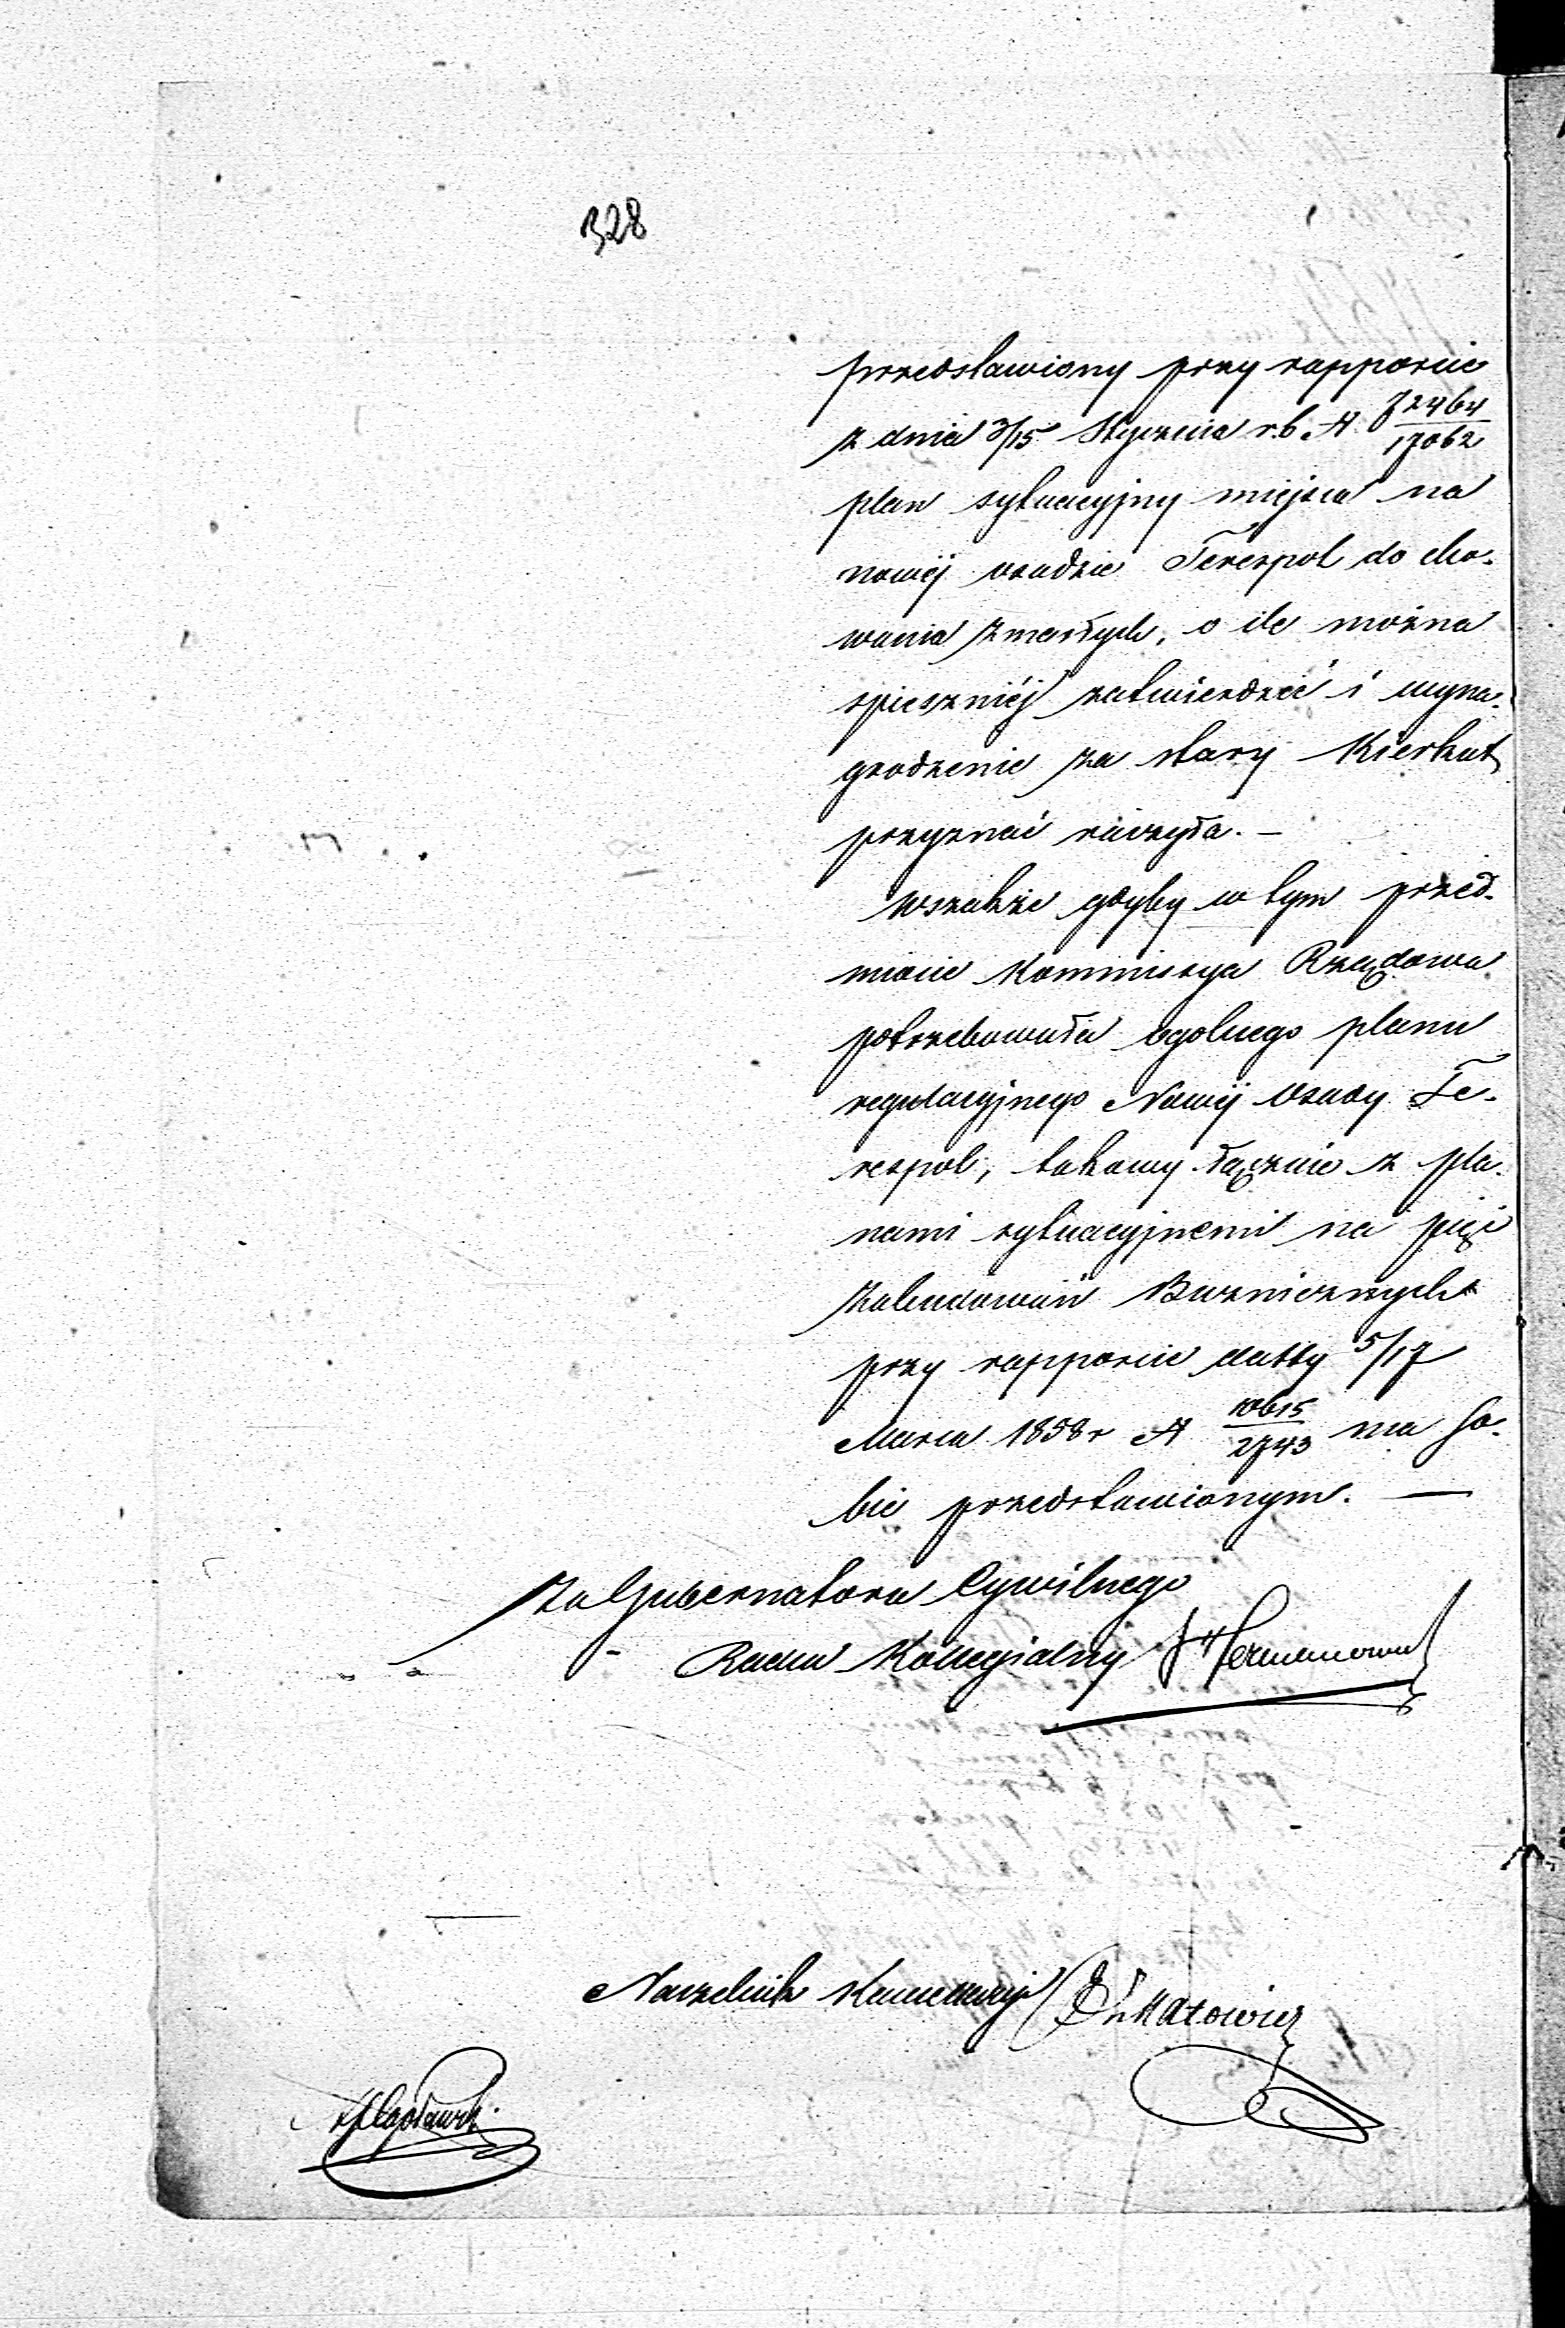 328
przedstawiony przy rapporcie
z dnia 3/15 Stycznia r.b. N 72464/17062
plan sytuacyjny miejsca na
nowéj osadzie Terespol do cho-
wania zmarłych, o ile można
spieszniéj zatwierdzić i wyna-
grodzenie za stary Kierkut
przyznać raczyła. —
Wszakże gdyby w tym przed-
miocie Kommissya Rządowa
potrzebowała ogolnego planu
regulacyjnego Nowéj Osady Te-
respol, takowy łącznie z pla-
nami sytuacyjnemi na pięć
zabudowań Bużnicznych
przy rapporcie datty 5/17
Marca 1858 r N 10615/2743 ma so-
bie przedstawionym. —
Za Gubernatora Cywilnego
Radca Kollegialny
Naczelnik Kancellaryi